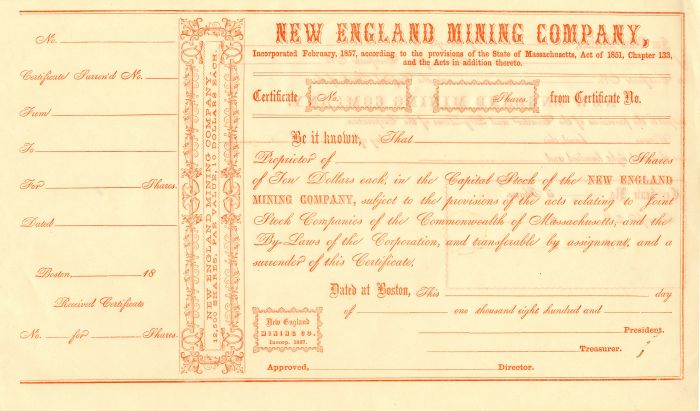 No.
Certificate Surren'd No.
From
To
For Shares.
Dated
Boston, 18
Received Certificate
No. for Shares.
NEW ENGLAND MINING COMPANY.
12,500 SHARES, PAR VALUE, 10 DOLLARS EACH.
NEW ENGLAND MINING COMPANY,
Incorporated February, 1857, according to the provisions of the State of Massachusetts, Act of 1851, Chapter 133,
and the Acts in addition thereto.
Certificate No. Shares. from Certificate No.
Be it known, That
Proprietor of Shares
of Ten Dollars each, in the Capital Stock of the NEW ENGLAND
MINING COMPANY, subject to the provisions of the acts relating to Joint
Stock Companies of the Commonwealth of Massachusetts, and the
By-Laws of the Corporation, and transferable by assignment, and a
surrender of this Certificate.
Dated at Boston, This day
of one thousand eight hundred and
New England
MINING CO.
Incorp. 1857.
President.
Treasurer.
Approved, Director.